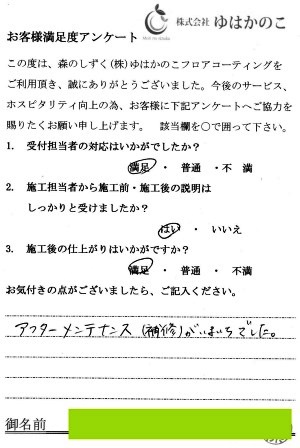 株式会社 ゆはかのこ
お客様満足度アンケート
この度は、森のしずく(株)ゆはかのこフロアコーティングを
ご利用頂き、誠にありがとうございました。今後のサービス、
ホスピタリティ向上の為、お客様に下記アンケートへご協力を
賜りたくお願い申し上げます。　該当欄を○で囲って下さい。
1.　受付担当者の対応はいかがでしたか？
満足　・　普通　・不　満
2.　施工担当者から施工前・施工後の説明は
しっかりと受けましたか？
はい　・　いいえ
3.　施工後の仕上がりはいかがですか？
満足　・　普通　・　不満
お気付きの点がございましたら、ご記入ください。
アフターメンテナンス(補修)がいまいちでした。
御名前